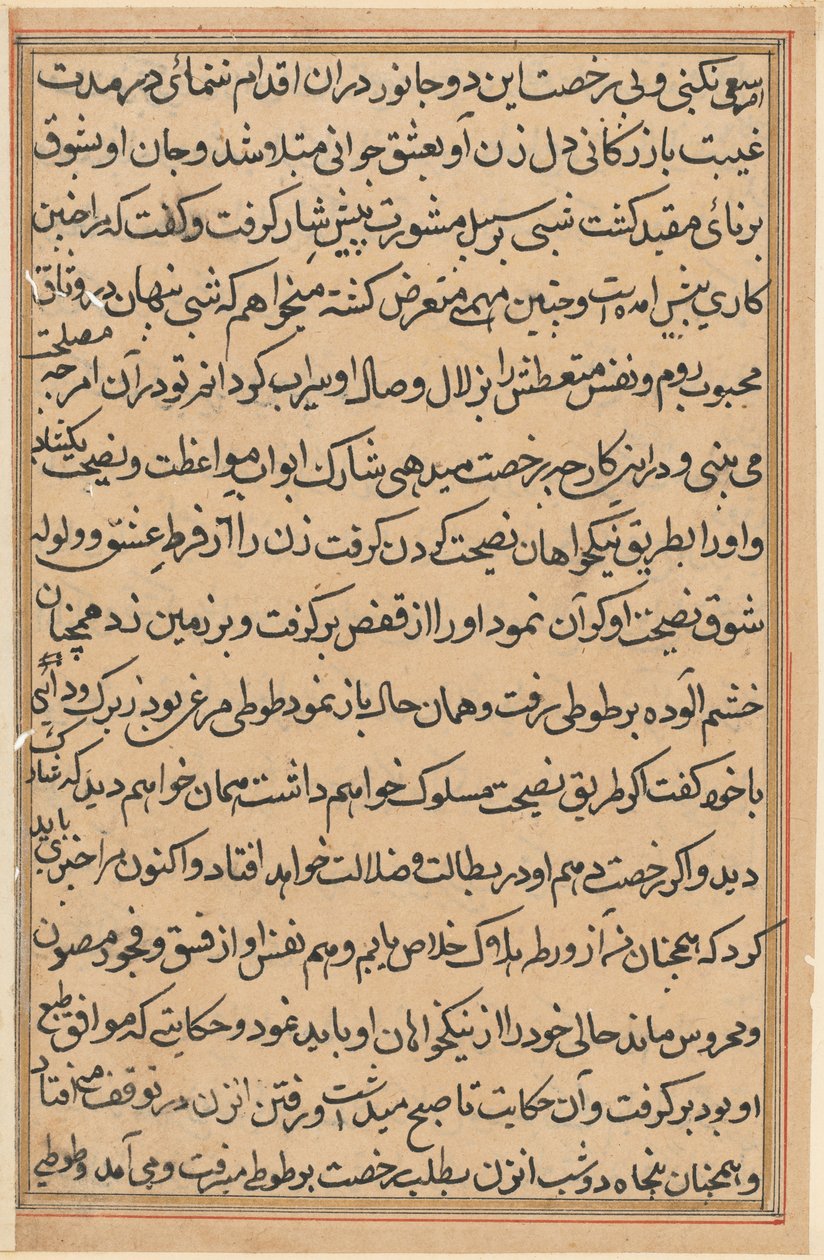 امر سعی نکنی و بی رخصت این دو جانور دران اقدام ننمائی در مدت
غیبت بازرکانی دل زن او بعشق جوانی مبتلا شد و جان او بشوق
برنائی مقید کشت شبی بر سبیل مشورت پیش شارک رفت و کفت که مرا چنین
کاری پیش امده است و چنین مهمی متعرض کشته میخواهم که شبی پنهان در وثاق
محبوب روم و نفس متعطش را بزلال وصال او سیراب کردانم تو دران امر چه مصلحت
می بینی و در این کار چه رخصت میدهی شارک ابواب مواعظت و نصیحت بکشاد
و او را بطریق نیکخواهان نصیحت کردن کرفت زن را از فرط عشق و ولوله
شوق نصیحت او کران نمود او را از قفص بر کرفت و بر زمین زد همچنان
خشم آلوده بر طوطی رفت و همان حال باز نمود طوطی مرغی بود زیرک و دانی
با خود کفت اکر طریق نصیحت مسلوک خواهم داشت همان خواهم دید که شارک
دید و اکر رخصت دهم او در بطالت و ضلالت خواهد افتاد و اکنون مرا چیزی باید
کرد که همچنان من از ورطه هلاک خلاص یابم و هم نفس او از فسق و فجور مصون
و محروس ماند حالی خود را از نیکخواهان او باید نمود و حکایتی که موافق طبع
او بود بر کرفت و آن حکایت تا صبح میداشت و رفتن انزن در توقف میافتاد
و همچنان پنجاه دو شب انزن بطلب رخصت بر طوطی میرفت و می آمد و طوطی